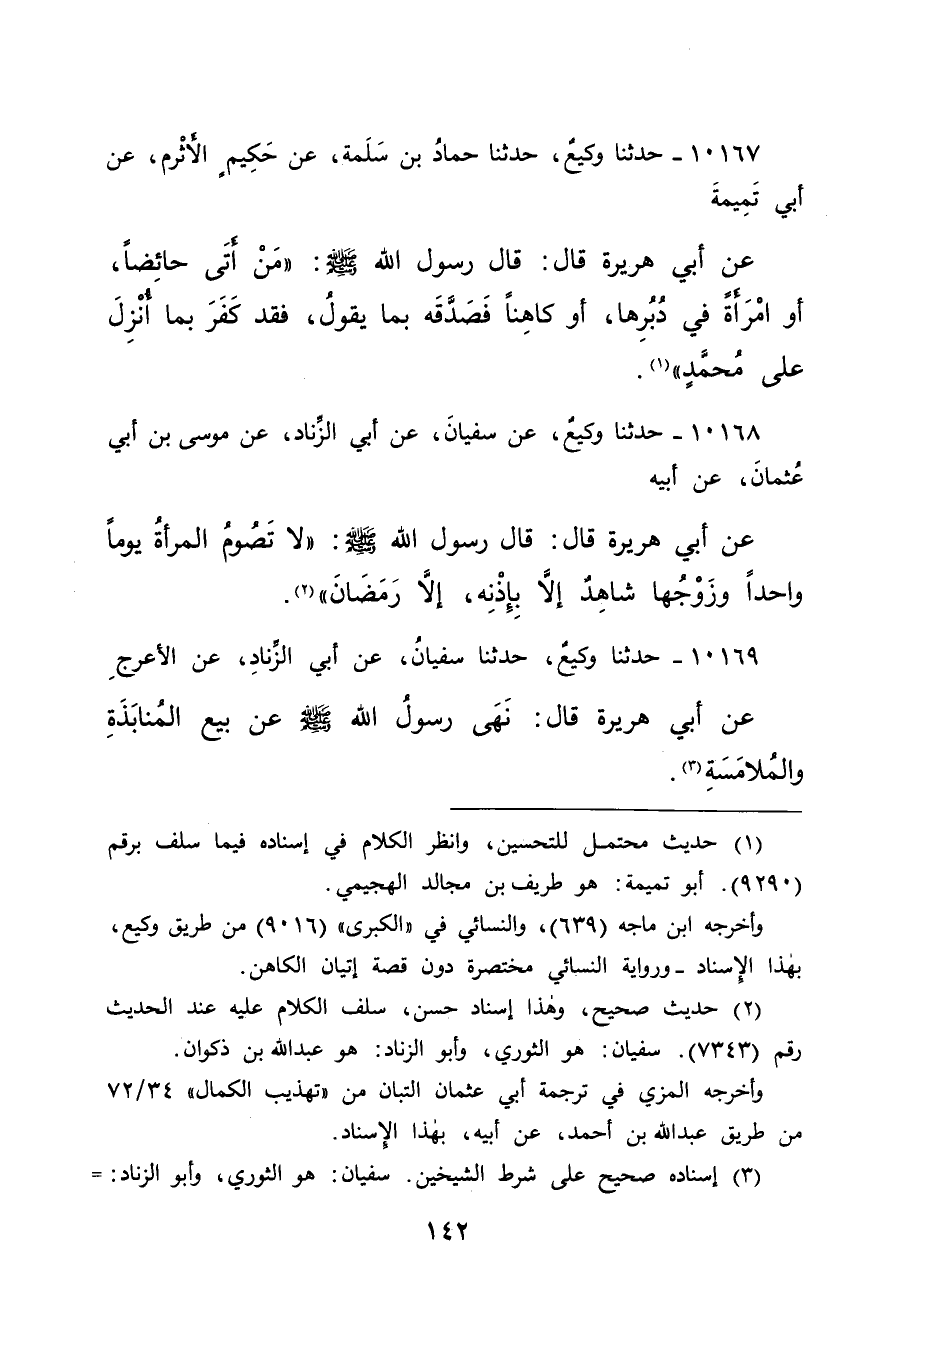 ١٠١٦٧ ـ حدثنا وكيعٌ، حدثنا حمادُ بن سَلَمة، عن حَكِيمٍ الأَثْرم، عن
أبي تَمِيمةَ
عن أبي هريرة قال: قال رسول الله ﷺ: «مَنْ أَتَى حائِضاً،
أو امْرَأَةً في دُبُرِها، أو كاهِناً فَصَدَّقَه بما يقولُ، فقد كَفَرَ بما أُنْزِلَ
على مُحمَّدٍ»(١).
١٠١٦٨ ـ حدثنا وكيعٌ، عن سفيانَ، عن أبي الزِّناد، عن موسى بن أبي
عُثمانَ، عن أبيه
عن أبي هريرة قال: قال رسول الله ﷺ: «لا تَصُومُ المرأةُ يوماً
واحداً وزَوْجُها شاهِدٌ إلَّا بِإِذْنِه، إلَّا رَمَضَانَ»(٢).
١٠١٦٩ ـ حدثنا وكيعٌ، حدثنا سفيانُ، عن أبي الزِّنادِ، عن الأعرجِ
عن أبي هريرة قال: نَهَى رسولُ الله ﷺ عن بيع المُنابَذَةِ
والمُلامَسَةِ(٣).
(١) حديث محتمل للتحسين، وانظر الكلام في إسناده فيما سلف برقم
(٩٢٩٠). أبو تميمة: هو طريف بن مجالد الهجيمي.
وأخرجه ابن ماجه (٦٣٩)، والنسائي في «الكبرى» (٩٠١٦) من طريق وكيع،
بهٰذا الإسناد ـ ورواية النسائي مختصرة دون قصة إتيان الكاهن.
(٢) حديث صحيح، وهٰذا إسناد حسن، سلف الكلام عليه عند الحديث
رقم (٧٣٤٣). سفيان: هو الثوري، وأبو الزناد: هو عبدالله بن ذكوان.
وأخرجه المزي في ترجمة أبي عثمان التبان من «تهذيب الكمال» ٧٢/٣٤
من طريق عبدالله بن أحمد، عن أبيه، بهٰذا الإسناد.
(٣) إسناده صحيح على شرط الشيخين. سفيان: هو الثوري، وأبو الزناد: =
١٤٢